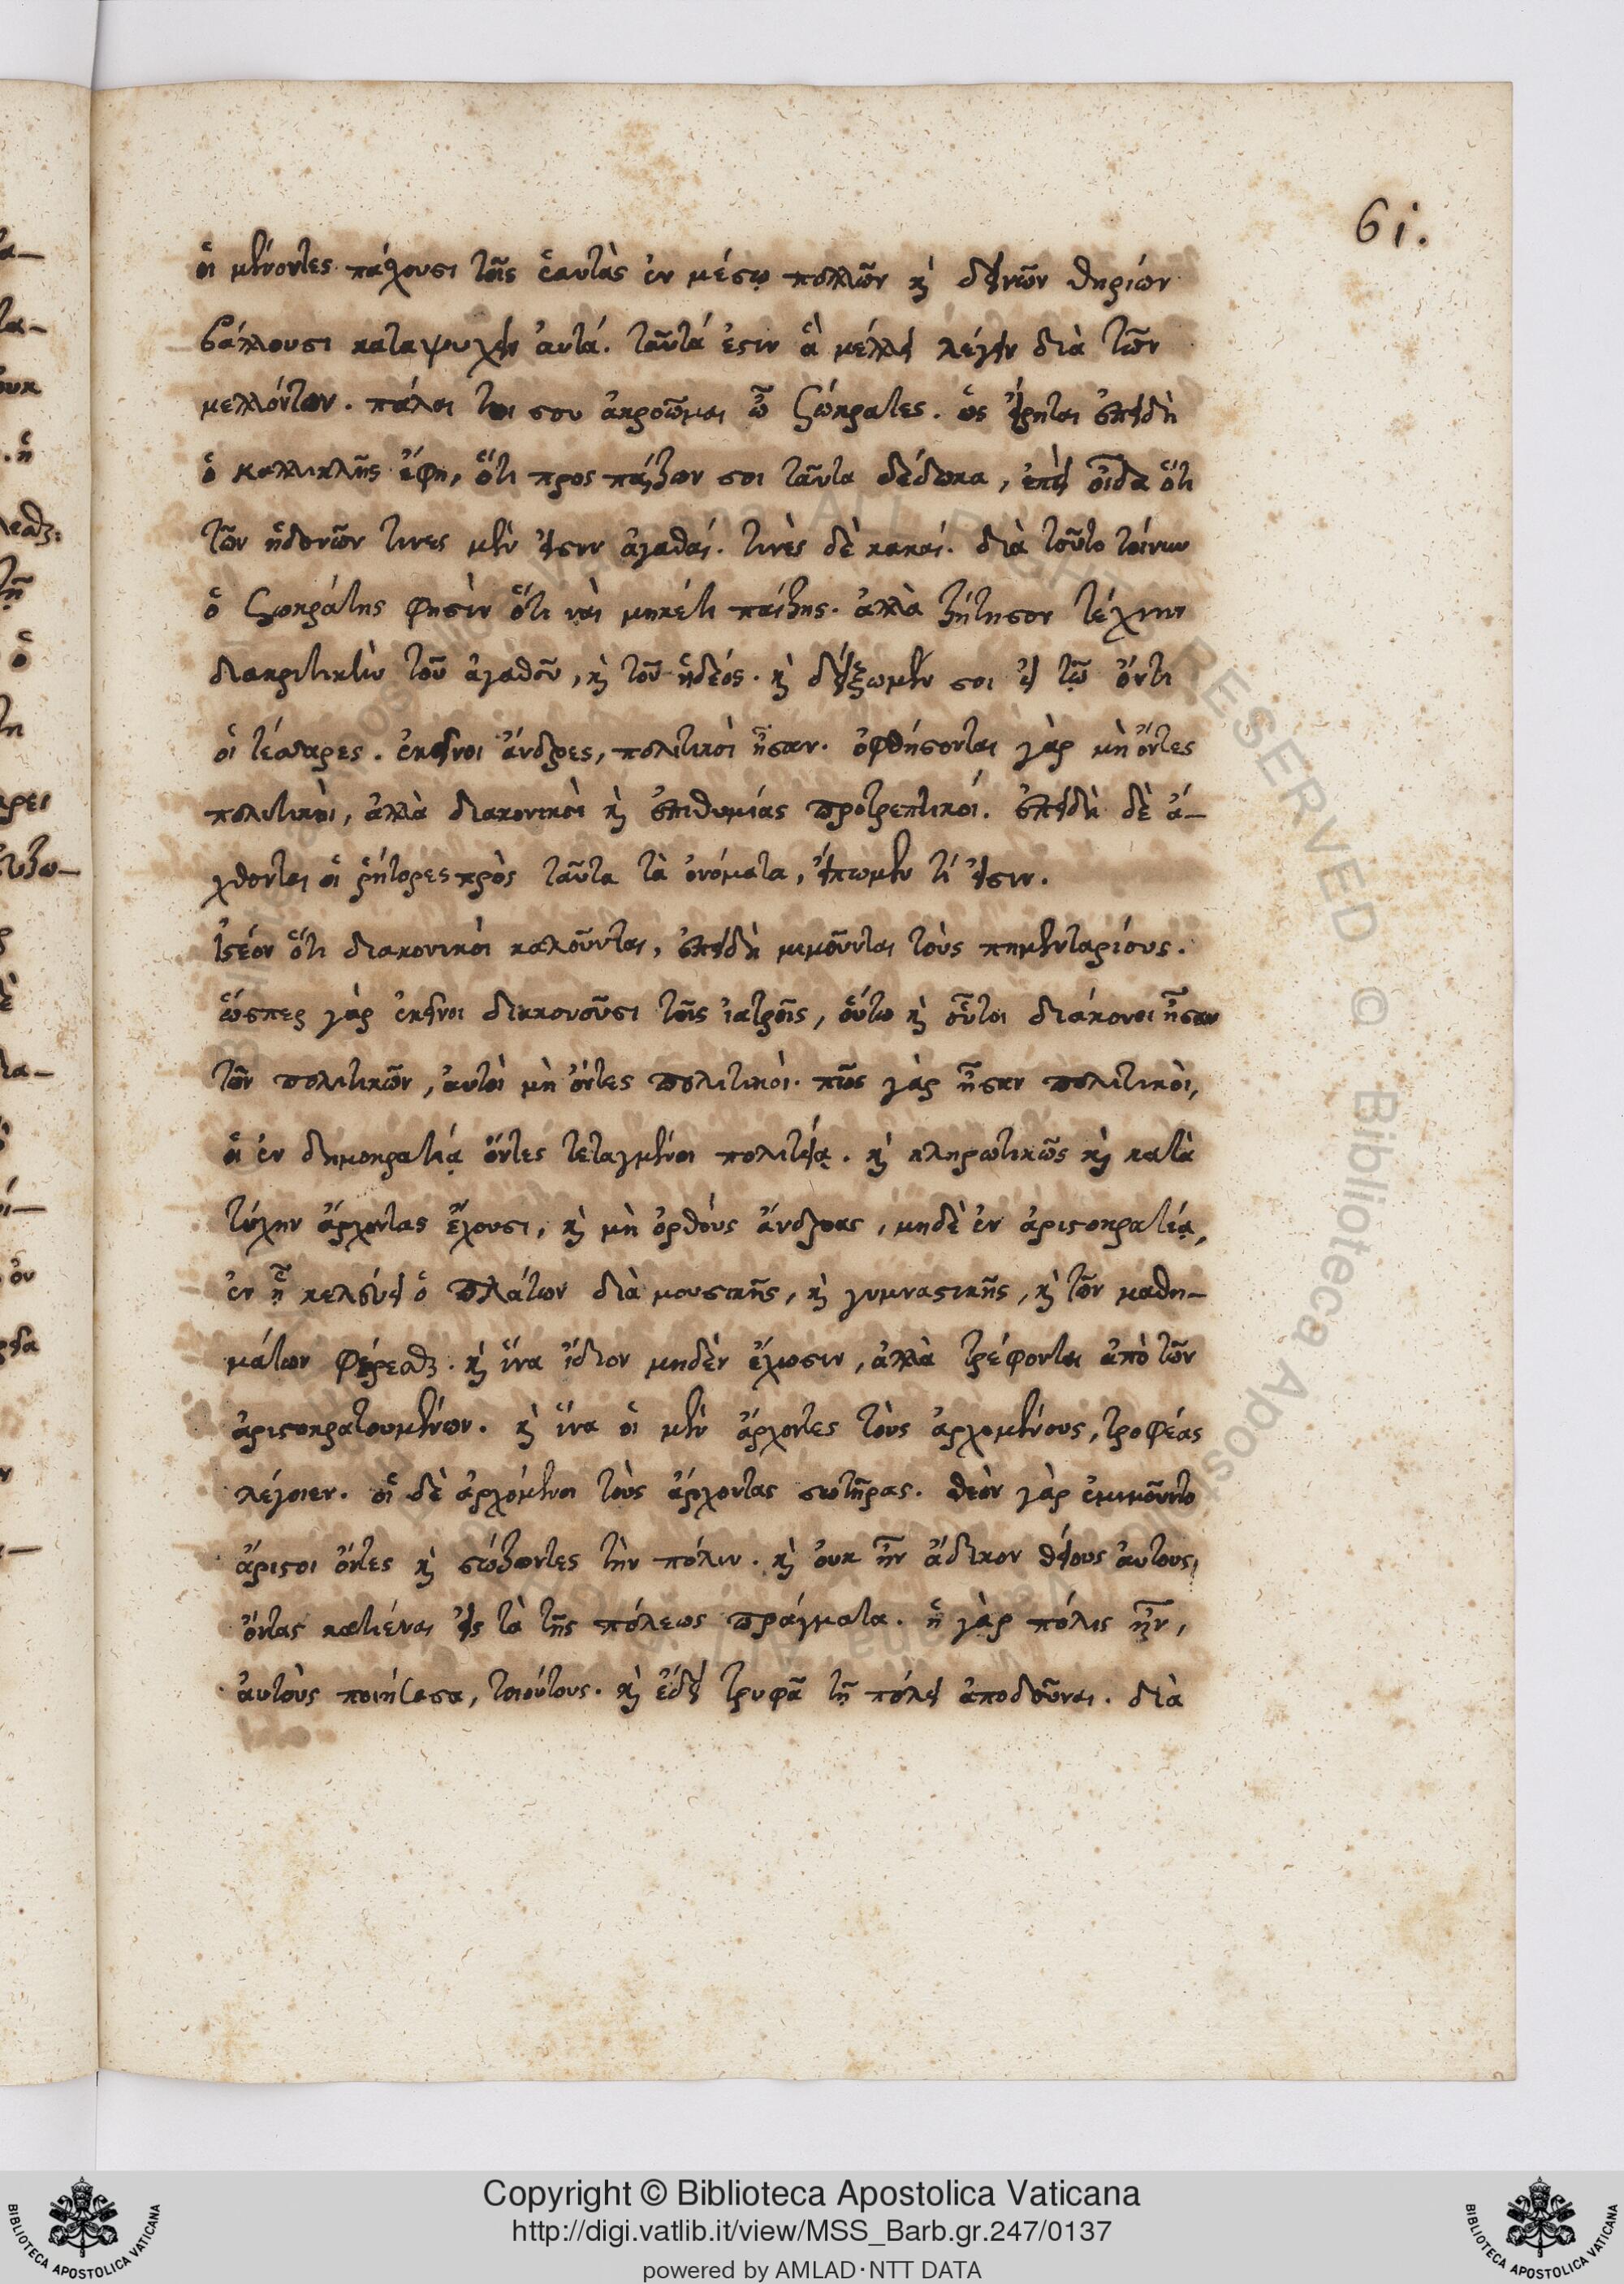 61.
οἱ μένοντες πάσχουσι τοῖς ἑαυτὰς ἐν μέσῳ πολλῶν κὶ δεινῶν θηρίων
βάλλουσι καταψυχεῖν ἀυτά. ταῦτά ἐστιν ἃ μέλλει λέγειν διὰ τῶν
μελλόντων. πάλαι τοι σου ἀκροῶμαι ὦ Σώκρατες. ὡς εἴρηται ἐπειδὴ
ὁ καλλικλῆς ἔφη, ὅτι προς πάιζων σοι ταῦτα δέδωκα, ἐπεὶ οἶδα ὅτι
τῶν ἡδονῶν τινες μὲν εἰσιν ἀγαθαί. τινὲς δὲ κακαί. διὰ τοῦτο τοίνυν
ὁ Σωκράτης φησὶν ὅτι ναὶ μηκέτι παίζης. ἀλλὰ ζήτησον τέχνην
διακριτικὴν τοῦ ἀγαθοῦ, κὶ τοῦ ἡδέος. κὶ δείξωμέν σοι εἰ τῷ ὄντι
οἱ τέσσαρες. ἐκεῖνοι ἄνδρες, πολιτικοὶ ἦσαν. ὀφθήσονται γὰρ μὴ ὄντες
πολιτικὸι, ἀλλὰ διακονικοὶ κὶ ἐπιθυμίας προτρεπτικοί. ἐπειδὴ δὲ ἄ-
χθονται οἱ ῥήτορες πρὸς ταῦτα τὰ ὀνόματα, εἴπωμεν τί εἰσιν.
ἰστέον ὅτι διακονικὸι καλοῦνται, ἐπειδὴ μιμοῦνται τοὺς πημενταρίους.
ὥσπερ γὰρ ἐκεῖνοι διακονοῦσι τοῖς ἰατροῖς, ὅυτω κὶ οὗτοι διάκονοι ἦσαν
τῶν πολιτικῶν, ἀυτοὶ μὴ ὄντες πολιτικὸι. πῶς γὰρ ἦσαν πολιτικὸι,
οἱ ἐν δημοκρατίᾳ ὄντες τεταγμένοι πολιτείᾳ. κὶ κληρωτικῶς κὶ κατὰ
τύχην ἄρχοντας ἔχουσι, κὶ μὴ ὀρθοὺς ἄνδρας, μηδὲ ἐν ἀριστοκρατίᾳ,
ἐν ᾗ κελεύει ὁ Πλάτων διὰ μουσικῆς, κὶ γυμναστικῆς, κὶ τῶν μαθη-
μάτων φέρεσθαι. κὶ ἵνα ἴδιον μηδὲν ἔχωσιν, ἀλλὰ τρέφονται ἀπὸ τῶν
ἀριστοκρατουμένων. κὶ ἵνα οἱ μὲν ἄρχοντες τοὺς ἀρχομένους, τροφέας
λέγοιεν. οἱ δὲ ἀρχόμενοι τοὺς ἄρχοντας σωτῆρας. θεὸν γὰρ ἐμιμοῦντο
ἄριστοι ὄντες κὶ σώζοντες τὴν πόλιν. κὶ ὀυκ ἦν ἄδικον θείους ἀυτους,
ὄντας κατιέναι εἰς τὰ τῆς πόλεως πράγματα. ἡ γὰρ πόλις ἦν,
ἀυτοὺς ποιήσασα, τοιούτους. κὶ ἔδει τρυφᾶ τῇ πόλει ἀποδοῦναι. διὰ
Copyright © Biblioteca Apostolica Vaticana
http://digi.vatlib.it/view/MSS_Barb.gr.247/0137
powered by AMLAD·NTT DATA